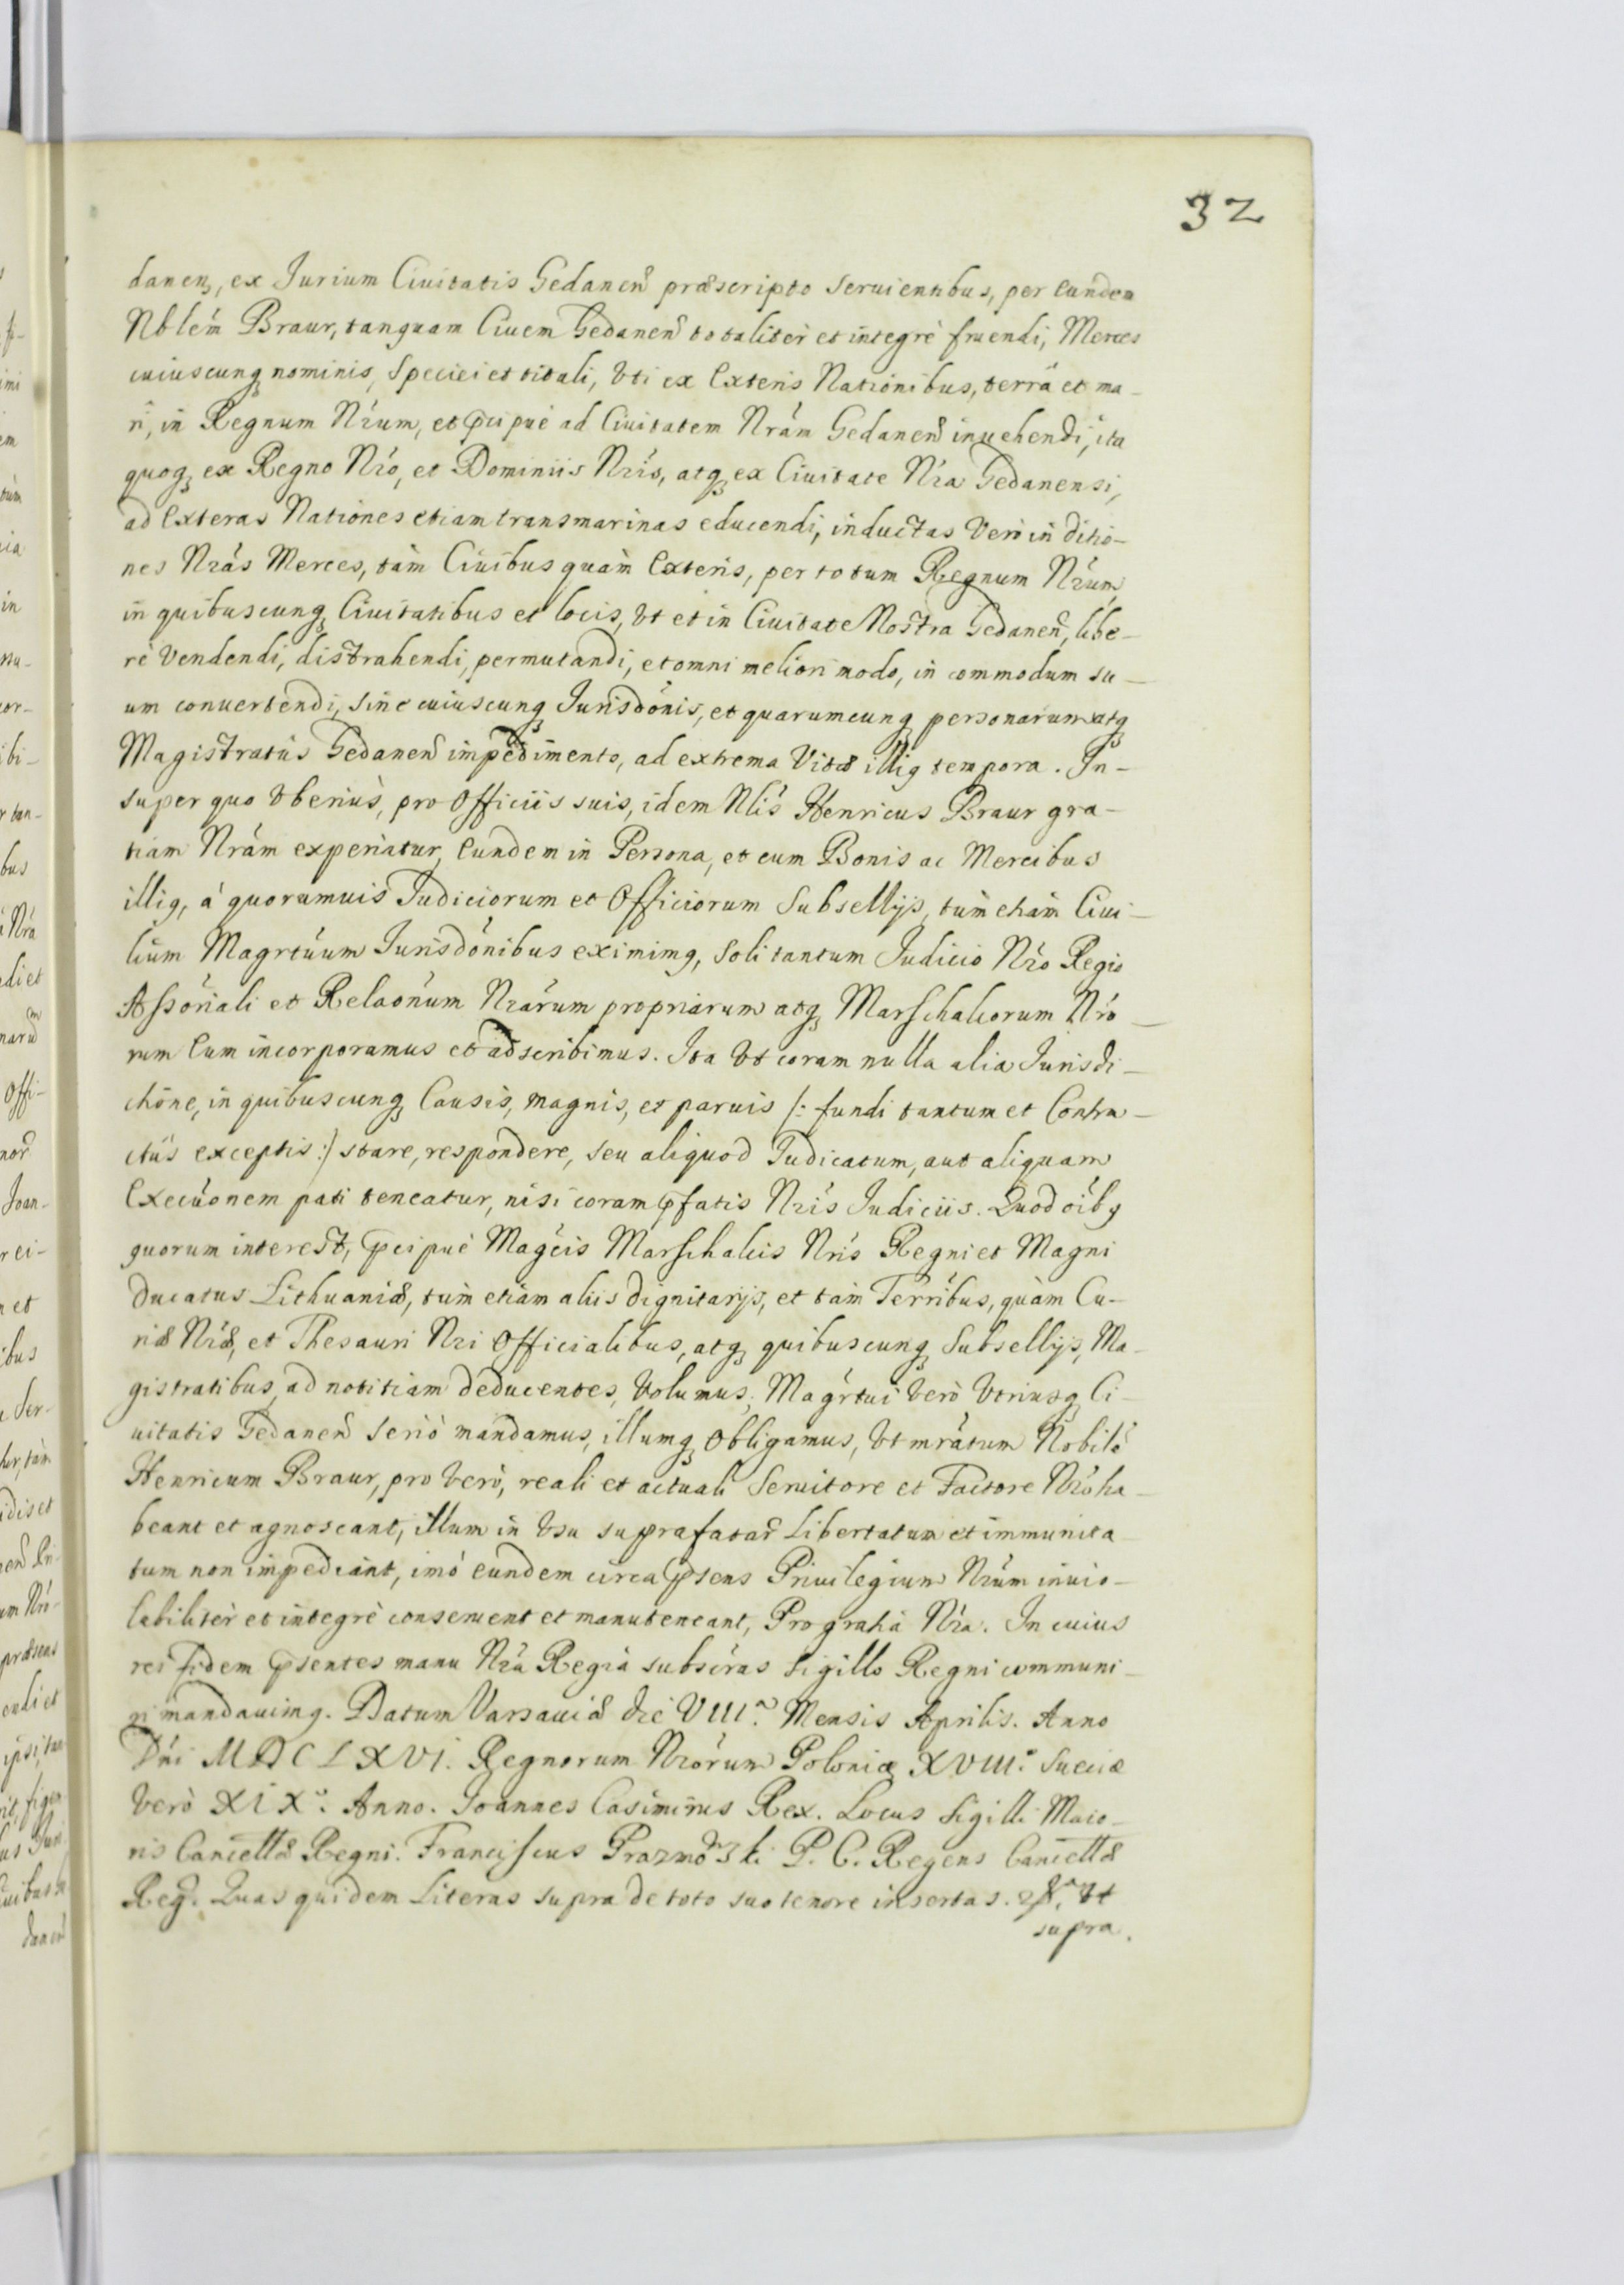 32
danen, ex Jurium Ciuitatis Gedanen præscripto Seruientibus, per Eundem
Nblém Braur, tanquam Ciuem Gedanen totalitèr et integrè fruendi, Merces
cuiuscunq nominis, Speciei et tituli, Vti ex Exteris Nationibus, terrâ et ma-
ri, in Regnum Nrum, et pcipuè ad Ciuitatem Nrám Gedanen inuehendi, ita
quoq ex Regno Nró, et Dominiis Nris, atq ex Ciuitate Nrá Gedanensi,
ad Exteras Nationes etiam transmarinas educendi, inductas Verò in ditio-
nes Nrás Merces, tàm Ciuibus quàm Exteris, per totum Regnum Nrúm,
in quibuscunq Ciuitatibus et locis, Vt et in Ciuitate Nostra Gedanen, libe-
rè Vendendi, distrahendi, permutandi, et omni meliori modo, in commodum su-
um conuertendi, Sine cuiuscunq Jurisdónis, et quarumcunq personarum atq
Magistratûs Gedanen impedimento, ad extrema Vitæ illiq tempora. In-
super quo Vberiùs, pro Officiis suis, idem Nlis Henricus Braur gra-
tiam Nrám experiatur, Eundem in Persona, et cum Bonis ac Mercibus
illiq, á quorumuis Judiciorum et Officiorum Subsellijs, tùm etiàm Ciui-
lium Magrtúum Jurisdónibus eximimq, Soli tantum Judicio Nró Regio
Assóriali et Relaónum Nrárum propriarum atq Marschalcorum Nró-
rum Eum incorporamus et adscribimus. Ita Vt coram nulla alia Jurisdi-
ctióne, in quibuscunq Causis, magnis, et paruis /: fundi tantum et Contra-
ctûs exceptis :/ stare, respondere, seu aliquod Judicatum, aut aliquam
Execúonem pati teneatur, nisi coram pfatis Nris Judiciis. Quod oíbq
quorum interest, pcipuè Magcis Marschalcis Nris Regni et Magni
Ducatus Lithuaniæ, tùm etiam aliis dignitarijs, et tàm Terribus, quàm Cu-
riæ Nræ, et Thesauri Nri Officialibus, atq quibuscunq Subsellijs, Ma-
gistratibus, ad notitiam deducentes, Volumus, Magrtui Verò Vtriusq Ci-
uitatis Gedanen Seriò mandamus, illumq Obligamus, Vt mrátum Nobile
Henricum Braur, pro Verò, reali et actuali Seruitore et Factore Nró ha-
beant et agnoscant, illum in Vsu suprafatar Libertatum et immunita-
tum non impediant, imò eundem circa psens Priuilegium Nrúm inuio-
labilitèr et integrè conseruent et manuteneant, Pro gratia Nra. In cuius
rei fidem psentes manu Nrá Regiâ subscras Sigillo Regni communi-
ri mandauimq. Datum Varsauiæ die VIII. Mensis Aprilis. Anno
Dni MDCLXVI. Regnorum Nrórum Poloniæ XVIII. Sueciæ
Verò XIX. Anno. Joannes Casimirus Rex. Locus Sigilli Maio-
ris Cancellæ Regni. Franciscus Prazmowski P. C. Regens Cancellæ
Reg. Quas quidem Literas supra de toto suo tenore insertas. Vt
supra.